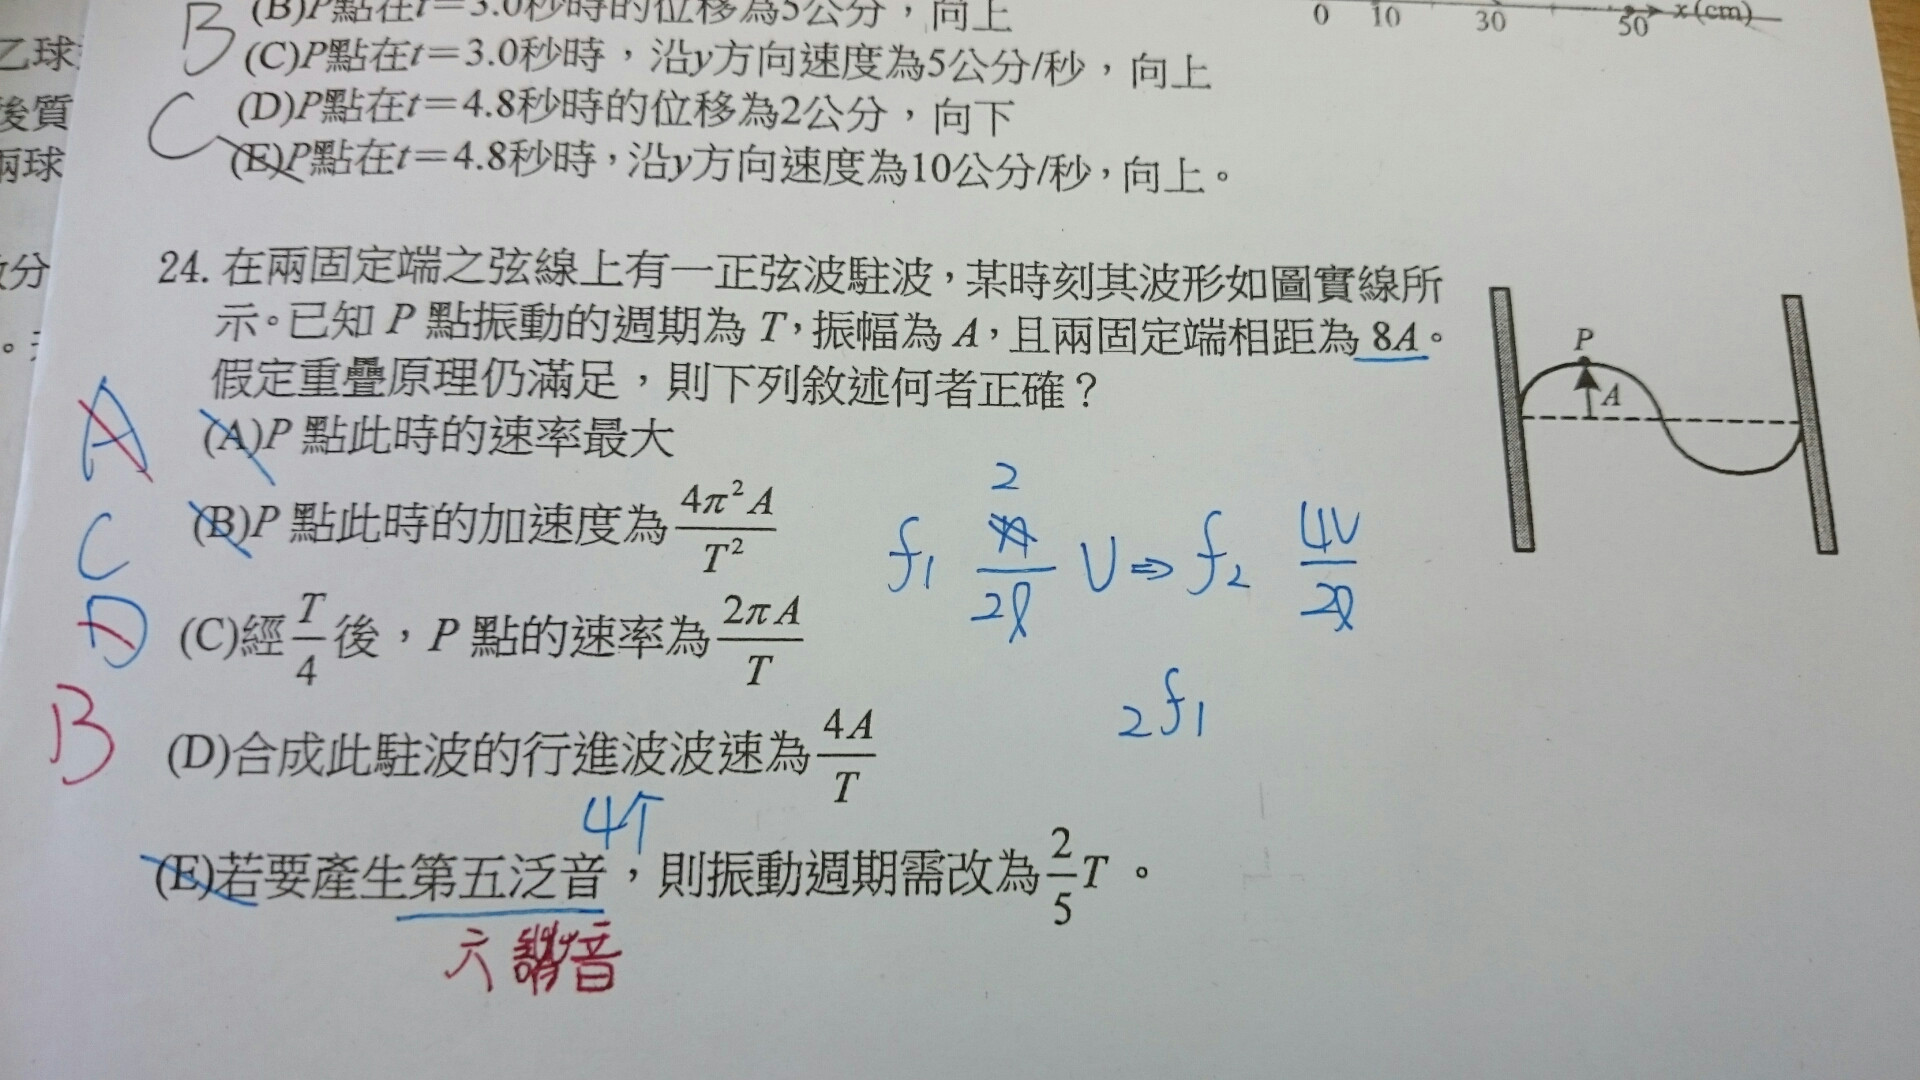 (B)P點在t=3.0秒時的位移為5公分，向上
B
(C)P點在t=3.0秒時，沿y方向速度為5公分/秒，向上
(D)P點在t=4.8秒時的位移為2公分，向下
C
(E)P點在t=4.8秒時，沿y方向速度為10公分/秒，向上。
0 10 30 50 x(cm)
乙球
後質
兩球
分
24. 在兩固定端之弦線上有一正弦波駐波，某時刻其波形如圖實線所
示。已知 P 點振動的週期為 T，振幅為 A，且兩固定端相距為 8A。
假定重疊原理仍滿足，則下列敘述何者正確？
P
A
A
(A)P 點此時的速率最大
C
(B)P 點此時的加速度為 4π²A/T²
D
(C)經 T/4 後，P 點的速率為 2πA/T
B
(D)合成此駐波的行進波波速為 4A/T
4個
(E)若要產生第五泛音，則振動週期需改為 2/5 T。
六諧音
f₁ 2/2ℓ V ⇒ f₂ 4V/2ℓ
2f₁